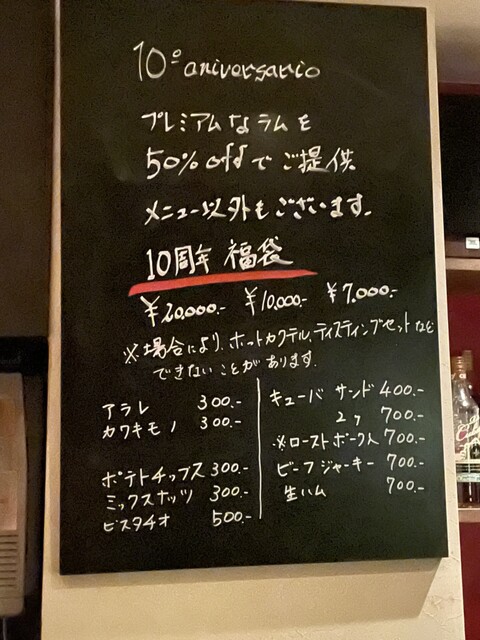 10º aniversario
プレミアムなラムを
50% offでご提供
メニュー以外もございます。
10周年 福袋
¥20,000.- ¥10,000.- ¥7,000.-
※場合により、ホットカクテル、テイスティングセットなど
できないことがあります。
アラレ 300.-
カワキモノ 300.-
ポテトチップス 300.-
ミックスナッツ 300.-
ピスタチオ 500.-
キューバ サンド 400.-
2ヶ 700.-
※ローストポーク入 700.-
ビーフジャーキー 700.-
生ハム 700.-